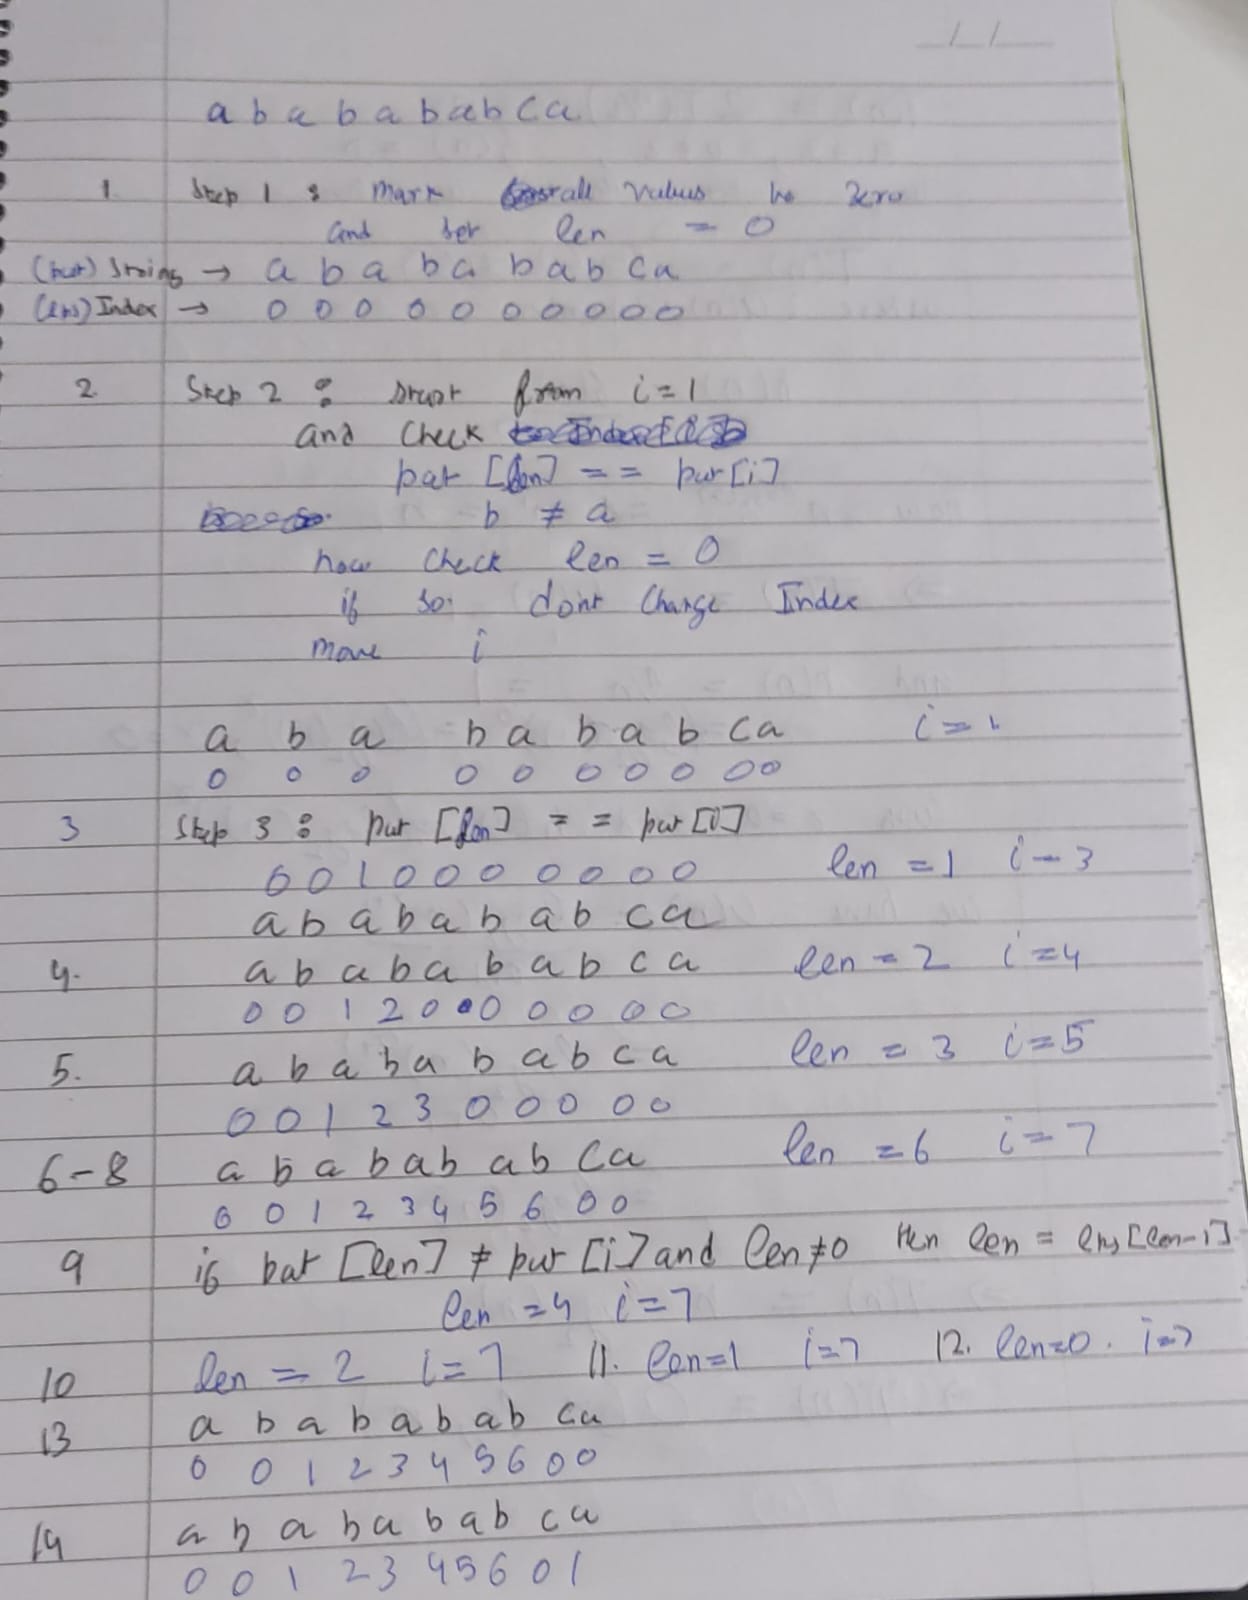 a b a b a b a b c a
1. Step 1 : Mark all values to zero
and set len = 0
(pat) String → a b a b a b a b c a
(lps) Index → 0 0 0 0 0 0 0 0 0 0
2 Step 2 : start from i = 1
and check
pat [len] == pat [i]
b ≠ a
now check len = 0
if so dont change Index
move i
a b a b a b a b c a i = 1
0 0 0 0 0 0 0 0 0 0
3 Step 3 : pat [len] == pat [i]
0 0 1 0 0 0 0 0 0 0 len = 1 i - 3
a b a b a b a b c a
4. a b a b a b a b c a len = 2 i = 4
0 0 1 2 0 0 0 0 0 0
5. a b a b a b a b c a len = 3 i = 5
0 0 1 2 3 0 0 0 0 0
6-8 a b a b a b a b c a len = 6 i = 7
0 0 1 2 3 4 5 6 0 0
9 if pat [len] ≠ pat [i] and len ≠ 0 then len = lps [len-1]
len = 4 i = 7
10 len = 2 i = 7 11. len = 1 i = 7 12. len = 0. i = 7
13 a b a b a b a b c a
0 0 1 2 3 4 5 6 0 0
14 a b a b a b a b c a
0 0 1 2 3 4 5 6 0 1